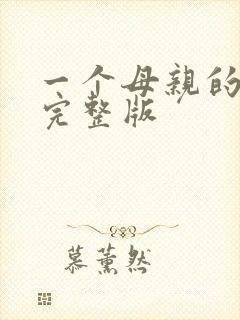 一个母亲的
完整版
慕薰然